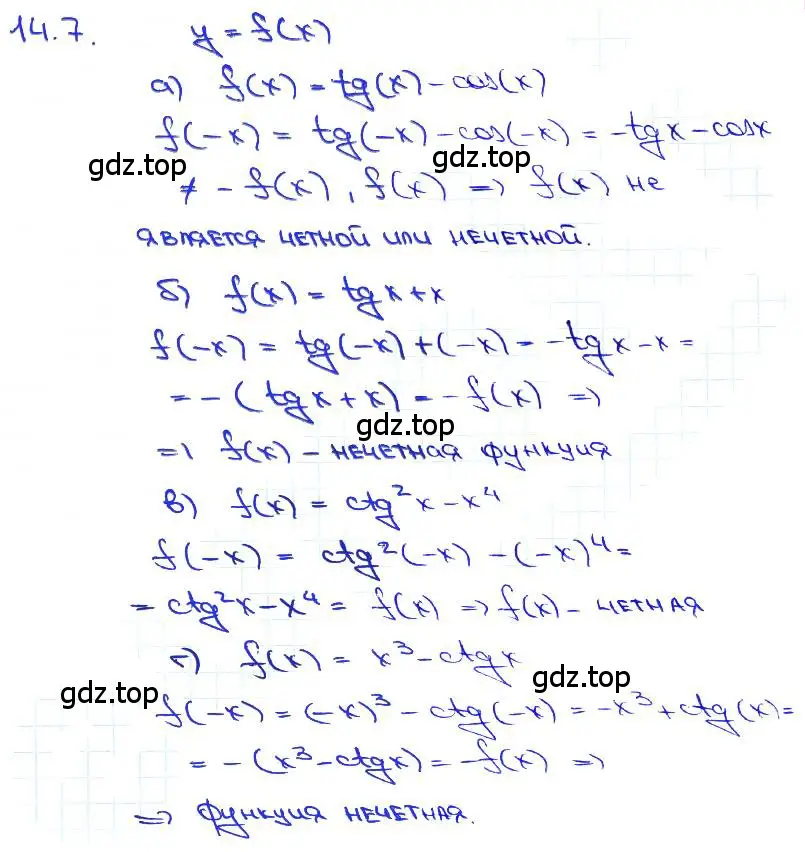 14.7. y = f(x)
а) f(x) = tg(x) - cos(x)
f(-x) = tg(-x) - cos(-x) = -tgx - cosx
gdz.top
gdz.top
≠ - f(x), f(x) => f(x) не
является четной или нечетной.
б) f(x) = tgx + x
f(-x) = tg(-x) + (-x) = -tgx - x =
= - (tgx + x) = -f(x) =>
gdz.top
=> f(x) - нечетная функция
в) f(x) = ctg²x - x⁴
f(-x) = ctg²(-x) - (-x)⁴ =
= ctg²x - x⁴ = f(x) => f(x) - четная
г) f(x) = x³ - ctgx
gdz.top
gdz.top
f(-x) = (-x)³ - ctg(-x) = -x³ + ctg(x) =
= - (x³ - ctgx) = -f(x) =>
=> функция нечетная.